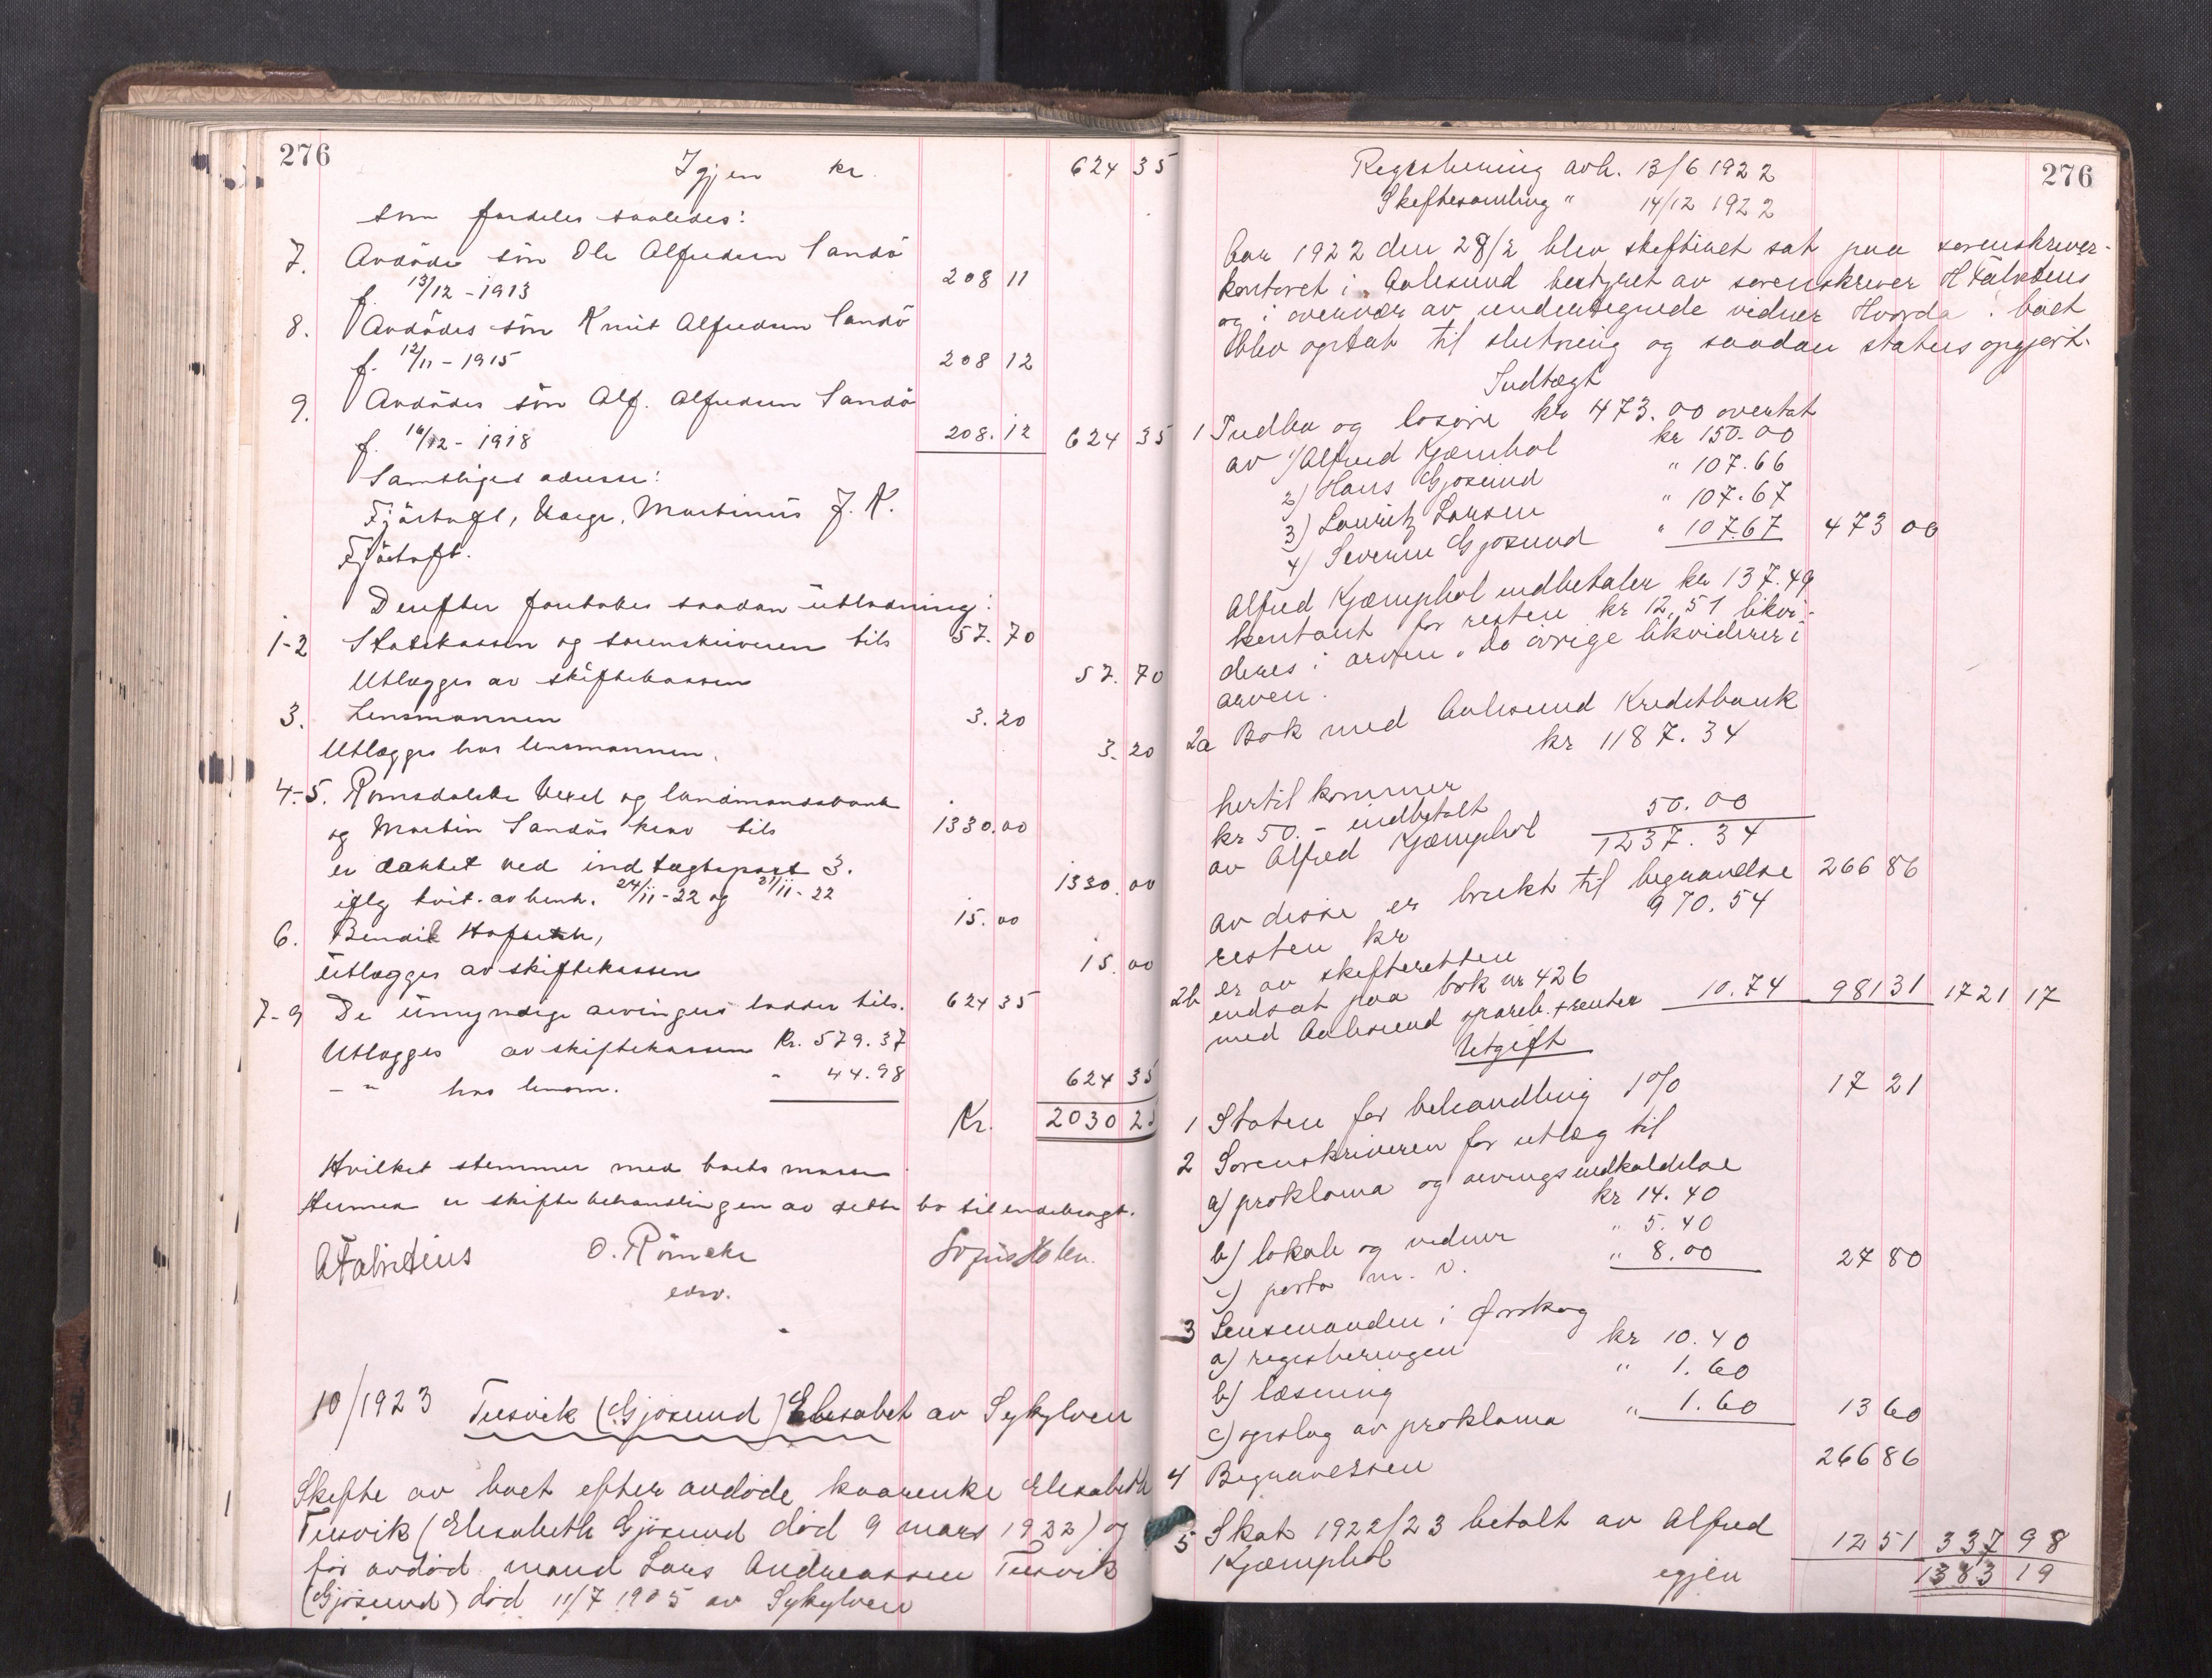 276
Igjen kr. 624 35
som fordeles saaledes:
7. Avdödes sön Ole Alfredsen Sandö
f. 13/12 - 1913 208 11
8. Avdödes sön Knut Alfredsen Sandö
f. 12/11 - 1915 208 12
9. Avdödes sön Alf. Alfredsen Sandö
f. 16/12 - 1918 208.12 624 35
Samtliges adresse:
Fjörtoft, Værge, Martinus J. K.
Fjörtoft.
Derefter foretokes saadan utlodning:
1-2 Statskassen og sorenskriveren tils 57.70
Utlægges av skiftekassen 57.70
3. Lensmannen 3.20
Utlægges hos lensmannen. 3.20
4-5. Romsdalske Vexel og landmandsbank
og Martin Sandös krav tils 1330.00
er dækket ved indtægtspost 3.
iflg kvit. av henh. 24/11-22 og 21/11-22 1330.00
6. Bendik 15.00
Utlægges av skiftekassen 15.00
7-9 De umyndige arvingers lodder tils. 624 35
Utlægges av skiftekassen Kr. 579.37
- " - hos lensm. " 44.98 624 35
Kr. 2030 25
Hvilket stemmer med boets masse
Hermed er skiftebehandlingen av dette bo tilendebragt.
AFabritius O. Römcke Sofus Holen.
edsv.
10/1923 Tusvik (Gjøsund) Elisabet av Sykylven
Skifte av boet efter avdøde kaarenke Elisabeth
Tusvik (Elisabeth Gjøsund død 9 mars 1922) og
før avdød mand Lars Andreassen Tusvik
(Gjøsund) død 11/7 1905 av Sykylven
276
Registrering avh. 13/6 1922
Skiftesamling " 14/12 1922
Aar 1922 den 28/2 blev skifteret sat paa sorenskriver-
kontoret i Aalesund bestyret av sorenskriver AFabritius
og i overvær av undertegnede vidner Hvorda: boet
blev optat til slutning og saadan status opgjort.
Indtægt
1 Indbo og løsøre kr 473.00 overtat
av 1) Alfred Kjæmhol kr 150-00
2) Hans Gjøsund " 107.66
3) Lauritz Larsen " 107.67
4) Severin Gjøsund " 107.67 473 00
Alfred Kjæmphol indbetaler kr 137.49
kontant for resten kr 12,51 likvi-
deres i arven. De øvrige likviderer i
arven.
2a Bok med Aalesund Kreditbank
kr 1187.34
hertil kommer
kr 50.- indbetalt
av Alfred Kjæmphol 50.00
1237.34
av disse er brukt til begravelse 266 86
resten kr 970.54
2b er av skifteretten
indsat paa bok nr 426
med Aalesund spareb. + renter 10.74 981 31 1721 17
Utgift
1 Staten for behandling 1% 17 21
2 Sorenskriveren for utlæg til
a) proklama og arvingsindkaldelse
kr 14.40
b) lokale og vidner " 5.40
c) porto m. v. " 8.00 27 80
3 Lensmanden i Ørskog
a) registreringen kr 10.40
b) læsning " 1.60
c) opslag av proklama " 1.60 13 60
4 Begravelsen 266 86
5 Skat 1922/23 betalt av Alfred
Kjæmphol 12 51 337 98
igjen 1383 19